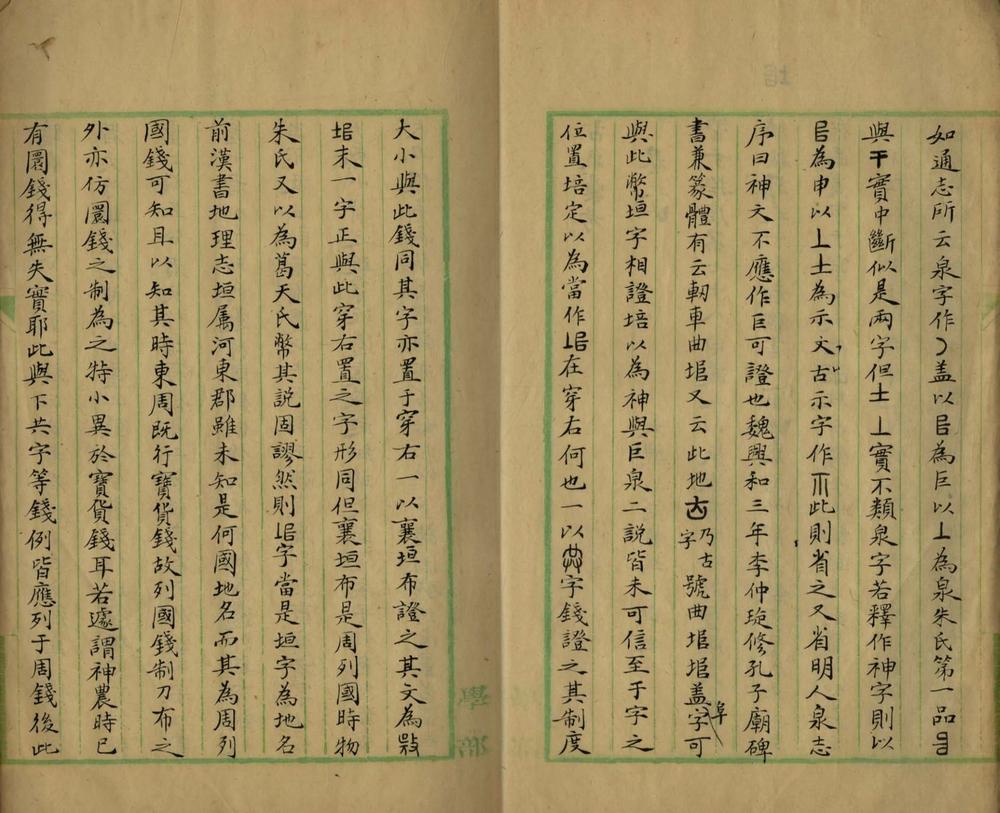 如通志所云泉字作㇁盖以㠯為巨以丄為泉朱氏第一品㠯
與干實中斷似是兩字但土丄實不類泉字若釋作神字則以
㠯為申以丄土為示文古示字作爪此則省之又省明人泉志
序曰神文不應作巨可證也魏興和三年李仲璇修孔子廟碑
書兼篆體有云軔車曲垖又云此地𠀉乃古字號曲垖垖盖阜字可
與此幣垣字相證培以為神與巨泉二說皆未可信至于字之
位置培定以為當作垖在穿右何也一以字錢證之其制度
大小與此錢同其字亦置于穿右一以襄垣布證之其文為
垖末一字正與此穿右置之字形同但襄垣布是周列國時物
朱氏又以為葛天氏幣其說固謬然則垖字當是垣字為地名
前漢書地理志垣属河東郡雖未知是何國地名而其為周列
國錢可知且以知其時東周既行寶貨錢故列國錢制刀布之
外亦仿圜錢之制為之特小異於寶貨錢耳若遽謂神農時已
有圜錢得無失實耶此與下共字等錢例皆應列于周錢後此